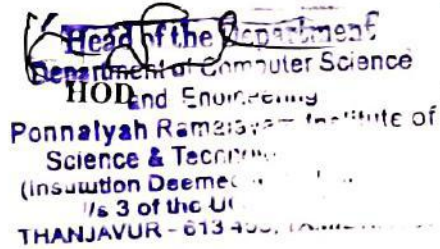 Head of the Department
Department of Computer Science
HOD and Engineering
Ponnaiyah Ramajayam Institute of
Science &
(Institution Deemed
u/s 3 of the
THANJAVUR - 613